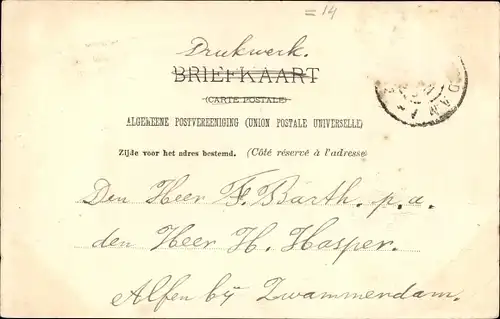 = 14
Drukwerk.
BRIEFKAART
(CARTE POSTALE)
ALGEMEENE POSTVEREENIGING (UNION POSTALE UNIVERSELLE)
Zijde voor het adres bestemd. (Côté réservé à l'adresse
Den Heer F. Barth. p. a.
den Heer H. Hasper.
Alfen bij Zwammerdam.